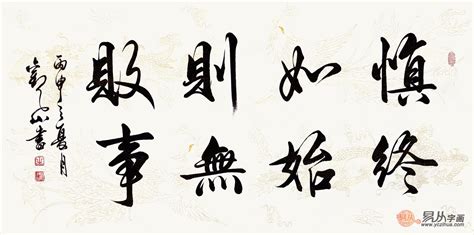 慎終
如始
則無
敗事
丙申之夏月
山書
易从字画
www.yczihua.com